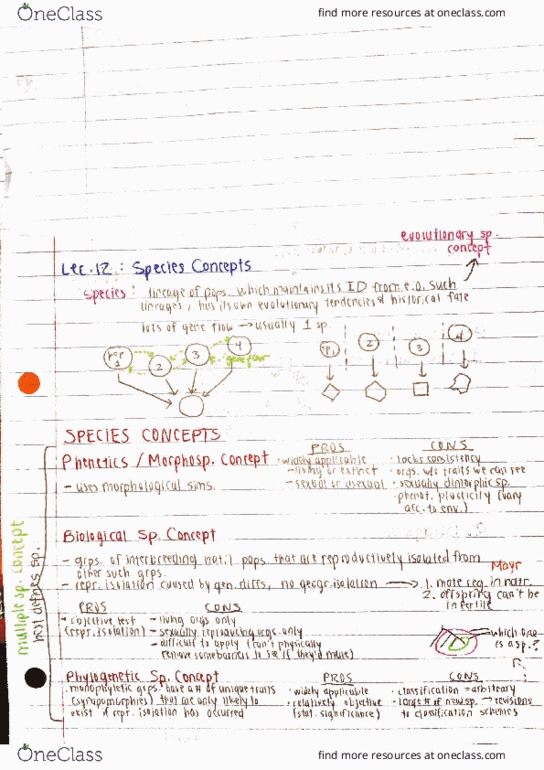 OneClass
find more resources at oneclass.com
evolutionary sp.
concept
Lec. 12 : Species Concepts
Species : lineage of pops. which maintains its ID from e.o. such
lineages, has its own evolutionary tendencies & historical fate
lots of gene flow → usually 1 sp.
pop 1
2
3
4
gene flow
sp. 1
2
3
4
SPECIES CONCEPTS
Phenetics / Morphosp. Concept
- uses morphological sims.
PROS
· widely applicable
- living or extinct
- sexual or asexual
CONS
· lacks consistency
· orgs. w/o traits we can see
· sexually dimorphic sp.
· phenot. plasticity (vary
acc. to env.)
multiple sp. concept
best defines sp.
Biological Sp. Concept
- grps. of interbreeding nat'l pops. that are reproductively isolated from
other such grps.
Mayr
- repr. isolation caused by gen. diffs, no geogr. isolation → 1. mate rec. in natr.
2. offspring can't be
infertile
PROS
- objective test
(repr. isolation)
CONS
- living orgs only
- sexually reproducing orgs. only
- difficult to apply (can't physically
remove some barriers to see if they'd mate)
which one
is a sp.?
Phylogenetic Sp. Concept
· monophyletic grps. have a # of unique traits
(synapomorphies) that are only likely to
exist if repr. isolation has occurred
PROS
· widely applicable
· relatively objective
(stat. significance)
CONS
· classification = arbitrary
· large # of new sp. → revisions
to classification schemes
OneClass
find more resources at oneclass.com